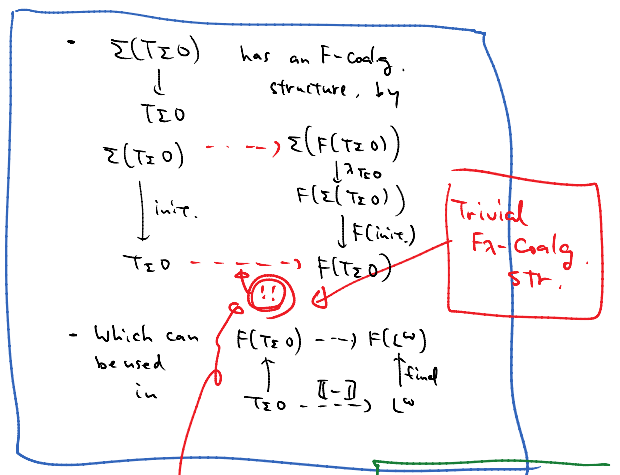 · Σ(TΣ0) has an F-coalg.
↓ structure, by
TΣ0
Σ(TΣ0) ---→ Σ(F(TΣ0))
↓λTΣ0
F(Σ(TΣ0))
↓ init. ↓ F(init.)
TΣ0 ----→ F(TΣ0)
!!
Trivial
Fλ-Coalg
str.
- Which can F(TΣ0) ---→ F(Lω)
be used ↑ ↑ final
in ⟦-⟧
TΣ0 ----→ Lω